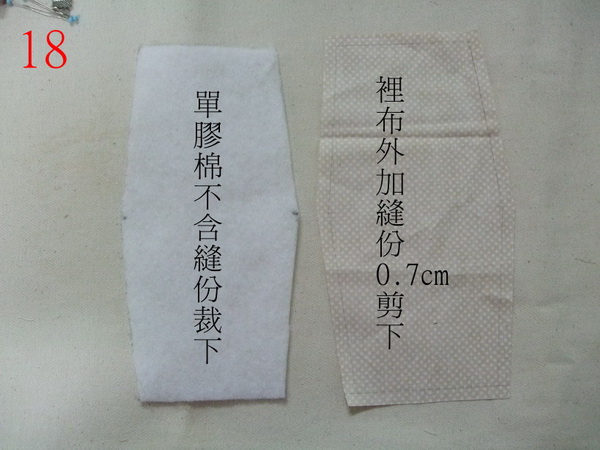 18
單膠棉不含縫份裁下
裡布外加縫份0.7cm剪下